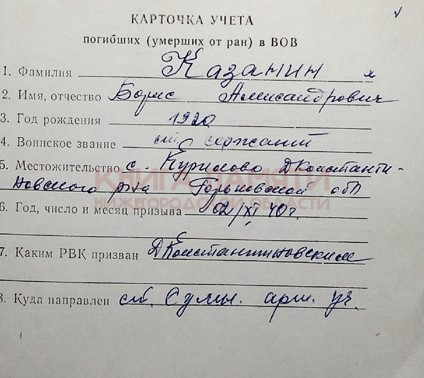 КАРТОЧКА УЧЕТА
погибших (умерших от ран) в ВОВ
1. Фамилия Казанин
2. Имя, отчество Борис Александрович
3. Год рождения 1920
4. Воинское звание сержант
5. Местожительство с. Курилово ДКонстанти-
новского р-на Горьковской обл
КНИГА ПАМЯТИ
НИЖЕГОРОДСКОЙ ОБЛАСТИ
6. Год, число и месяц призыва 02/XI 40 г.
7. Каким РВК призван ДКонстантиновским
8. Куда направлен ст. Сумы. арт. уч.